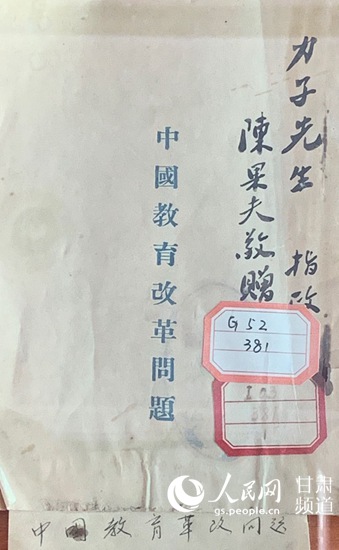 力子先生 指政
陳果夫敬贈
中國教育改革問題
G52
381
I03
人民网 甘肃
gs.people.cn 频道
中国教育革改问